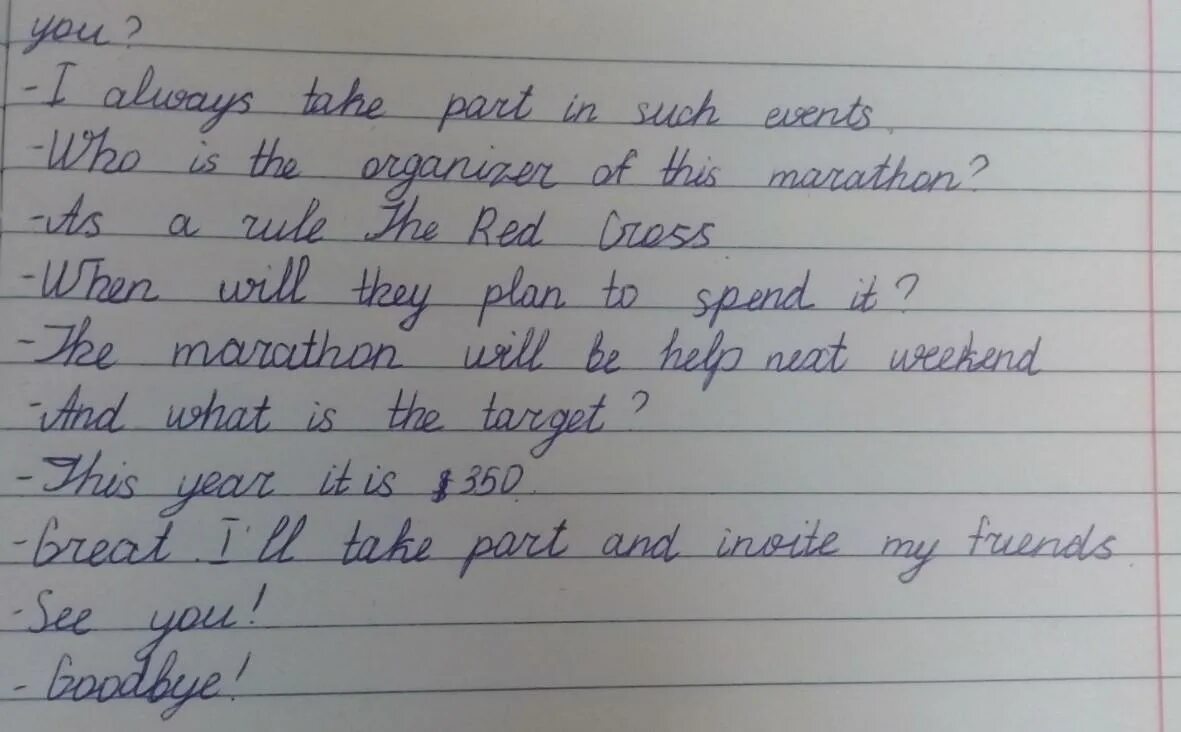 you?
-I always take part in such events.
-Who is the organizer of this marathon?
-As a rule The Red Cross
-When will they plan to spend it?
-The marathon will be help next weekend
-And what is the target?
-This year it is $350.
-Great. I'll take part and invite my friends.
-See you!
- Goodbye!